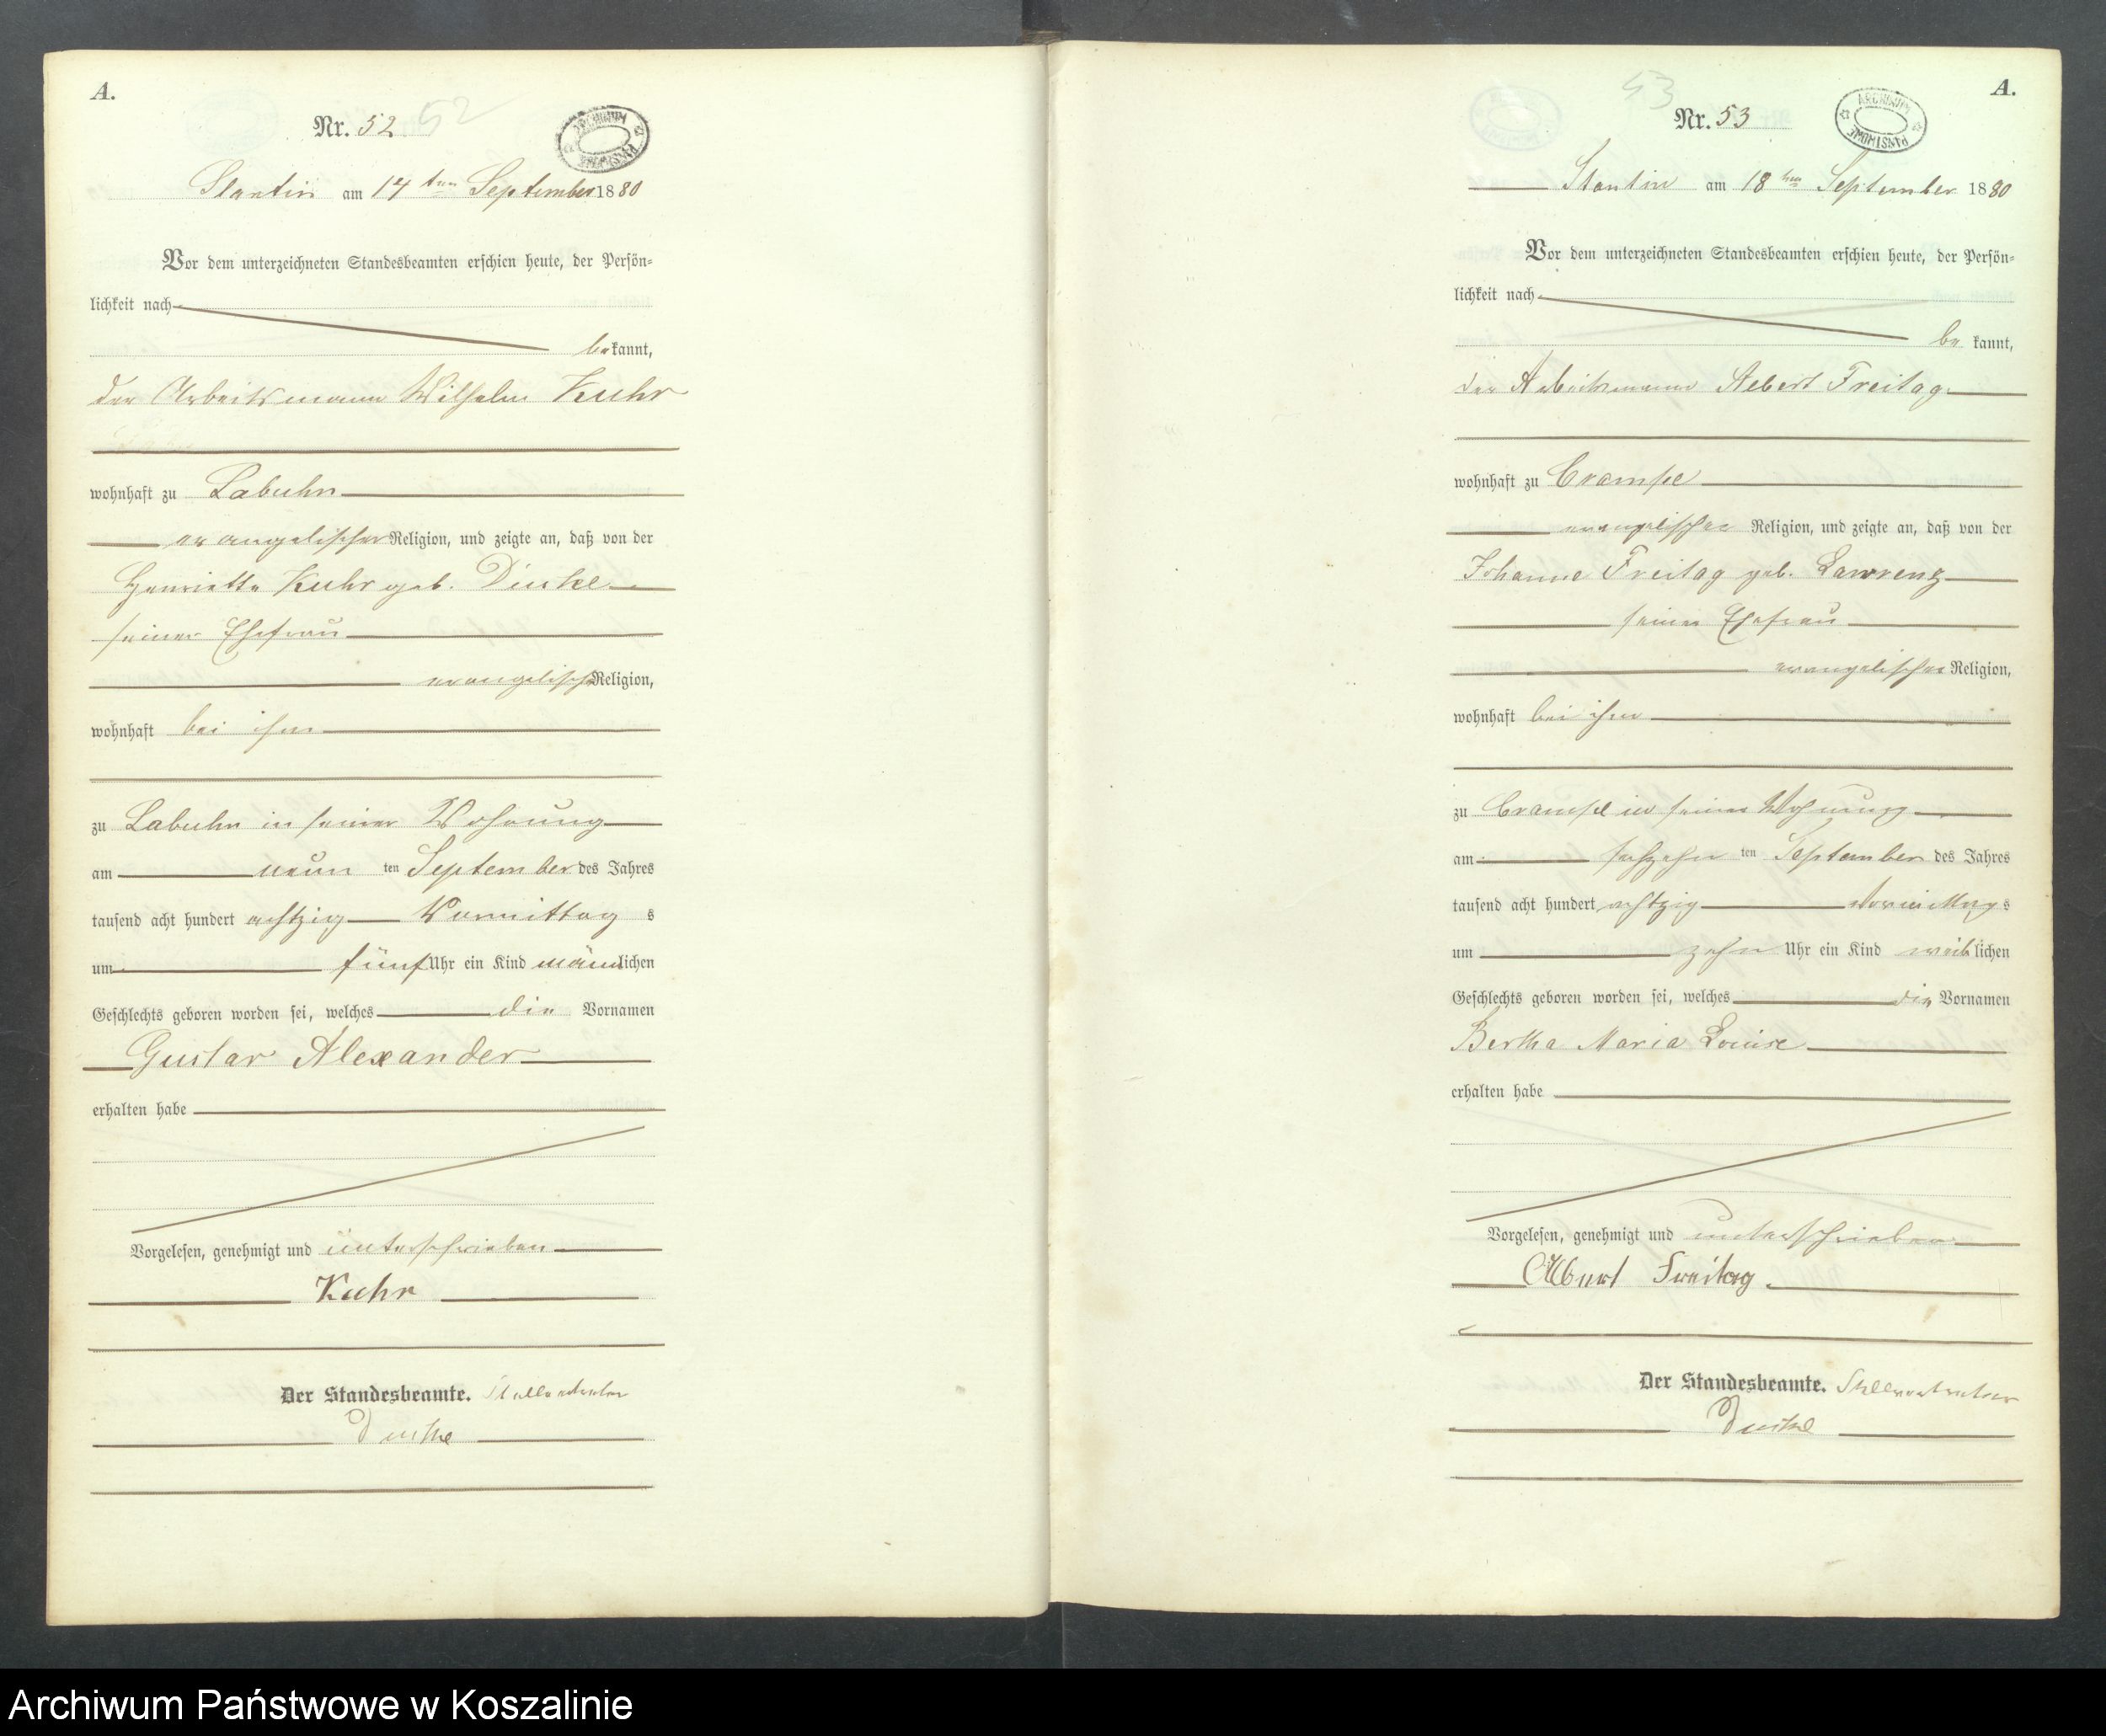 A.
Nr. 52
52
ARCHIWUM PAŃSTWOWE
Stantin am 14 ten September 1880
Vor dem unterzeichneten Standesbeamten erschien heute, der Persön-
lichkeit nach
bekannt,
der Arbeitsmann Wilhelm Kuhr
wohnhaft zu Labuhn
evangelischer Religion, und zeigte an, daß von der
Henriette Kuhr geb.
seiner Ehefrau
evangelischer Religion,
wohnhaft bei ihm
zu Labuhn in seiner Wohnung
am neun ten September des Jahres
tausend acht hundert achtzig Vormittag s
um fünf Uhr ein Kind männlichen
Geschlechts geboren worden sei, welches die Vornamen
Gustav Alexander
erhalten habe
Vorgelesen, genehmigt und unterschrieben
Kuhr
Der Standesbeamte. Stellvertreter
A.
53
Nr. 53
ARCHIWUM PAŃSTWOWE
Stantin am 18 ten September 1880
Vor dem unterzeichneten Standesbeamten erschien heute, der Persön-
lichkeit nach
be kannt,
der Arbeitsmann Albert Freitag
wohnhaft zu Crampe
evangelischer Religion, und zeigte an, daß von der
Johanne Freitag geb. Lawrenz
seiner Ehefrau
evangelischer Religion,
wohnhaft bei ihm
zu Crampe in seiner Wohnung
am sechzehn ten September des Jahres
tausend acht hundert achtzig Vormittags
um zehn Uhr ein Kind weiblichen
Geschlechts geboren worden sei, welches die Vornamen
Bertha Maria Louise
erhalten habe
Vorgelesen, genehmigt und unterschrieben
Albert Freitag
Der Standesbeamte. Stellvertreter
Archiwum Państwowe w Koszalinie